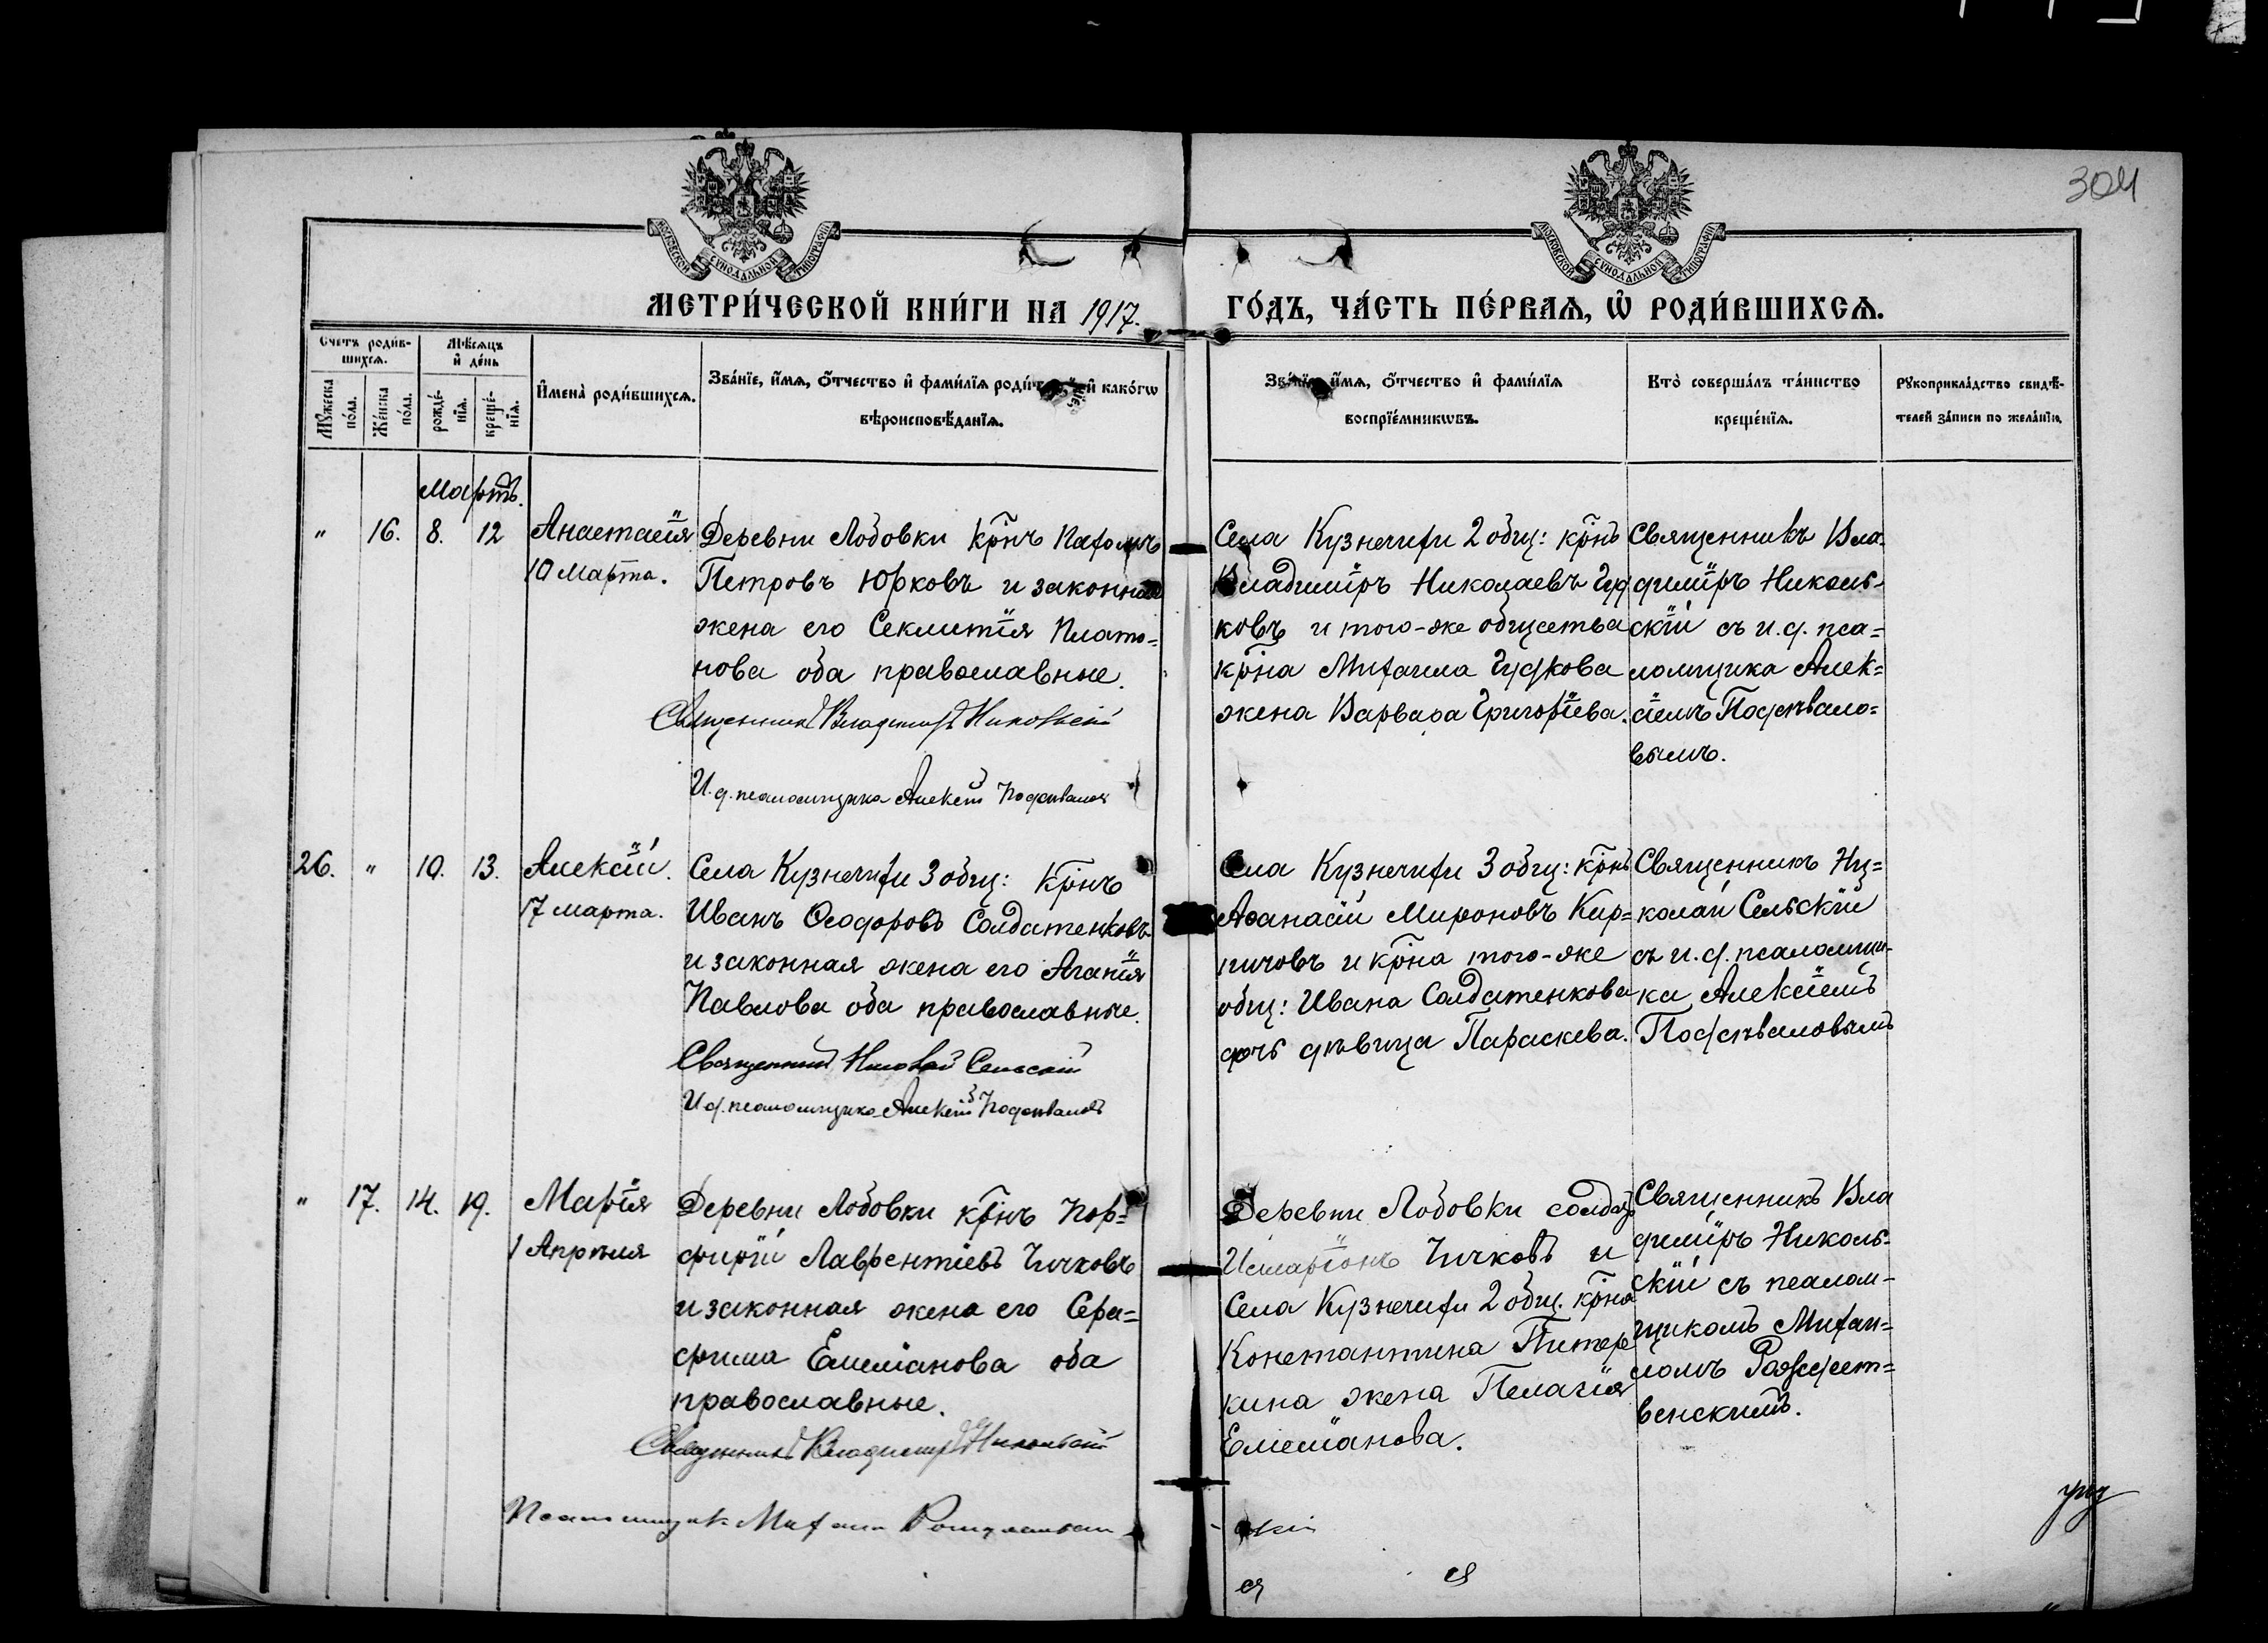 304
МОСКОВСКОЙ СУНОДАЛЬНОЙ ТИПОГРАФІИ
МОСКОВСКОЙ СУНОДАЛЬНОЙ ТИПОГРАФІИ
МЕТРИ́ЧЕСКОЙ КНИ́ГИ НА 1917.
ГО́ДЪ, ЧА́СТЬ ПЕ́РВАѦ, Ѡ҆ РОДИ́ВШИХСѦ.
Счетъ роди́в-
шихсѧ.
Мѣ́сѧцъ
и҆ де́нь
Мꙋжеска
по́ла.
Же́нска
по́ла.
рожде́-
нїѧ.
креще́-
нїѧ.
И҆мена̀ роди́вшихсѧ.
Зва́нїе, и҆́мѧ, ѻ҆́тчество и҆ фами́лїѧ и҆ како́гѡ
вѣроисповѣ́данїѧ.
Зва́нїе, и҆́мѧ, ѻ҆́тчество и҆ фами́лїѧ
воспрїе́мникѡвъ.
Кто̀ соверша́лъ та́инство
креще́нїѧ.
Рꙋкоприкла́дство свидѣ́-
телей за́писи по жела́нїю.
Мартъ.
" 16. 8. 12
Анастасія
10 Марта.
Деревни Лобовки крнъ Пахомъ
Петровъ Юрковъ и законная
жена его Секлитія Плато=
нова оба православные.
Священникъ Владиміръ Никольскій
И.д. псаломщика Алексѣй Подсѣваловъ
Села Кузнечихи 2 общ: крнъ
Владиміръ Николаевъ Гуд
ковъ и того-же общества
крна Михаила Гудкова
жена Варвара Григоріева.
Священникъ Вла-
диміръ Николь-
скій съ и.д. пса=
ломщика Алек=
сіемъ Подсѣвало=
вымъ.
26. " 10. 13.
Алексій.
17 марта.
Села Кузнечихи 3 общ: крнъ
Иванъ Ѳеодоровъ Солдатенковъ
и законная жена его Агапія
Павлова оба православные.
Священникъ Николай Сельскій
И.д. псаломщика Алексѣй Подсѣваловъ
Села Кузнечихи 3 общ: крнъ
Аѳанасій Мироновъ Кир=
пичовъ и крна того-же
общ: Ивана Солдатенкова
дочь дѣвица Параскева.
Священникъ Ни=
колай Сельскій
съ и.д. псаломщи-
ка Алексіемъ
Подсѣваловымъ
" 17. 14. 19.
Марія
1 Апрѣля
Деревни Лобовки крнъ Пор=
фирій Лаврентіевъ Чичковъ
и законная жена его Сера=
фима Емеліанова оба
православные.
Священникъ Владиміръ Никольскій
Псаломщикъ Михаилъ Рождественскій
Деревни Лобовки солдатъ
Иларіонъ Чичковъ и
Села Кузнечихи 2 общ. крна
Константина Питер
кина жена Пелагія
Емеліанова.
Священникъ Вла
диміръ Николь-
скій съ псалом-
щикомъ Михаи=
ломъ Рождест=
венскимъ.